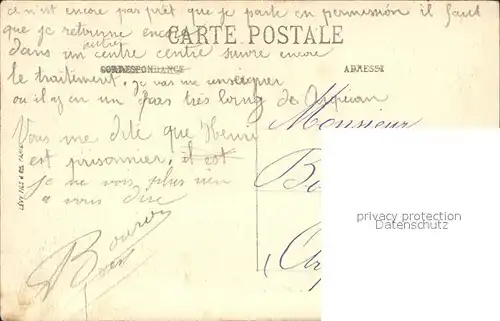 ce n'est encore pas prêt que je parte en permission il faut
que je retourne encore
CARTE POSTALE
dans un autre centre centre suivre encore
CORRESPONDANCE
ADRESSE
le traitiment. Je vais me renseigner
ou il y en un pas très loing de
Monsieur
Vous me dite que Henri
est prisonnier, il est
je ne vois plus rien
a vous dire
LÉVY FILS & CIE PARIS
privacy protection
www.oldthing.com